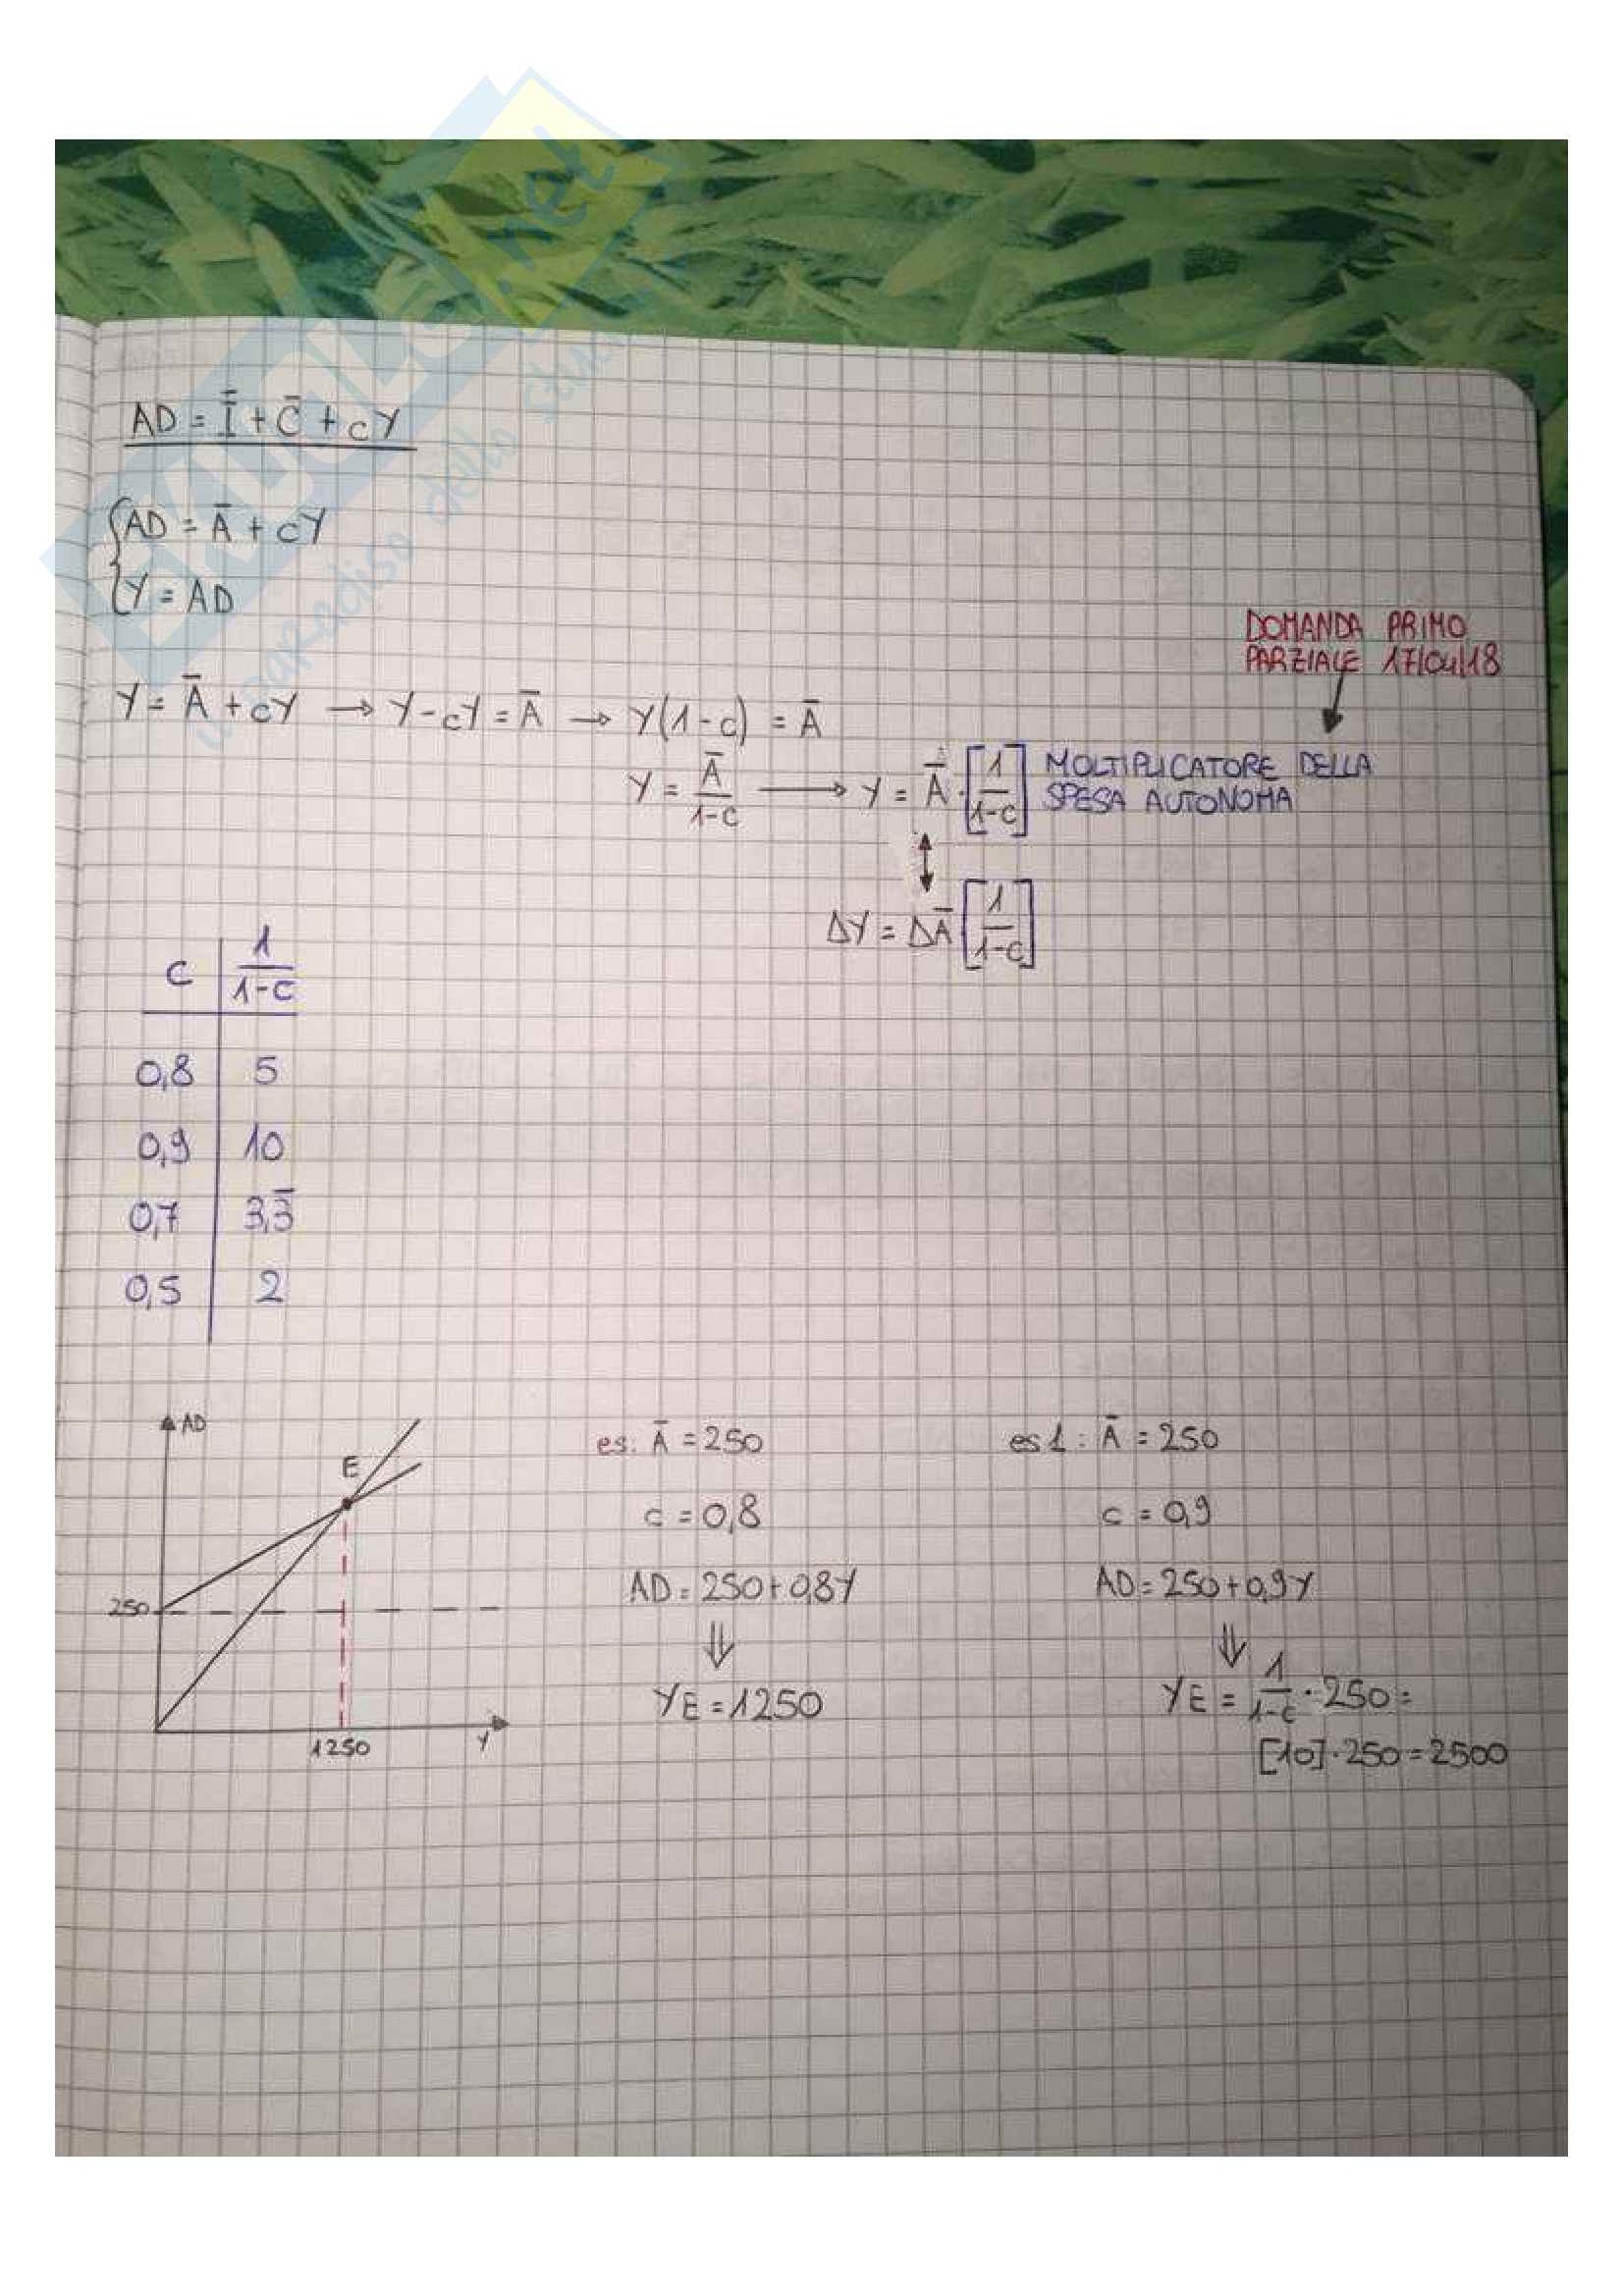 AD = Ī + C̄ + cY
AD = Ā + cY
Y = AD
DOMANDA PRIMO
PARZIALE 17/04/18
Y = Ā + cY → Y - cY = Ā → Y(1-c) = Ā
Y = Ā/(1-c) → Y = Ā · [1/(1-c)] MOLTIPLICATORE DELLA
SPESA AUTONOMA
ΔY = ΔĀ [1/(1-c)]
c | 1/(1-c)
0,8 | 5
0,9 | 10
0,7 | 3,3̄
0,5 | 2
AD
E
250
1250
Y
es: Ā = 250
c = 0,8
AD = 250 + 0,8Y
⇓
YE = 1250
es 1 : Ā = 250
c = 0,9
AD = 250 + 0,9Y
⇓
YE = 1/(1-c) · 250 =
[10] · 250 = 2500
SKUOLA.net
il paradiso dello studente